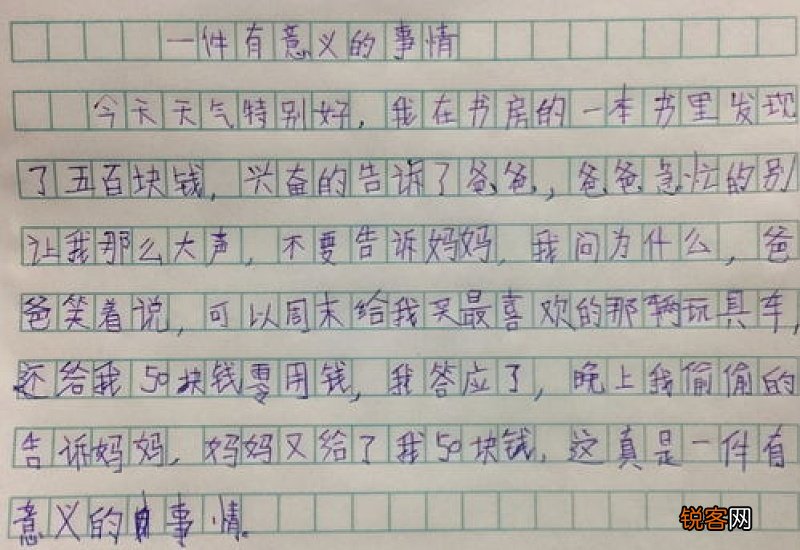 一件有意义的事情
今天天气特别好，我在书房的一本书里发现
了五百块钱，兴奋的告诉了爸爸，爸爸急忙的别
让我那么大声，不要告诉妈妈，我问为什么，爸
爸笑着说，可以周末给我买最喜欢的那辆玩具车，
还给我50块钱零用钱，我答应了，晚上我偷偷的
告诉妈妈，妈妈又给了我50块钱，这真是一件有
意义的事情。
锐客网